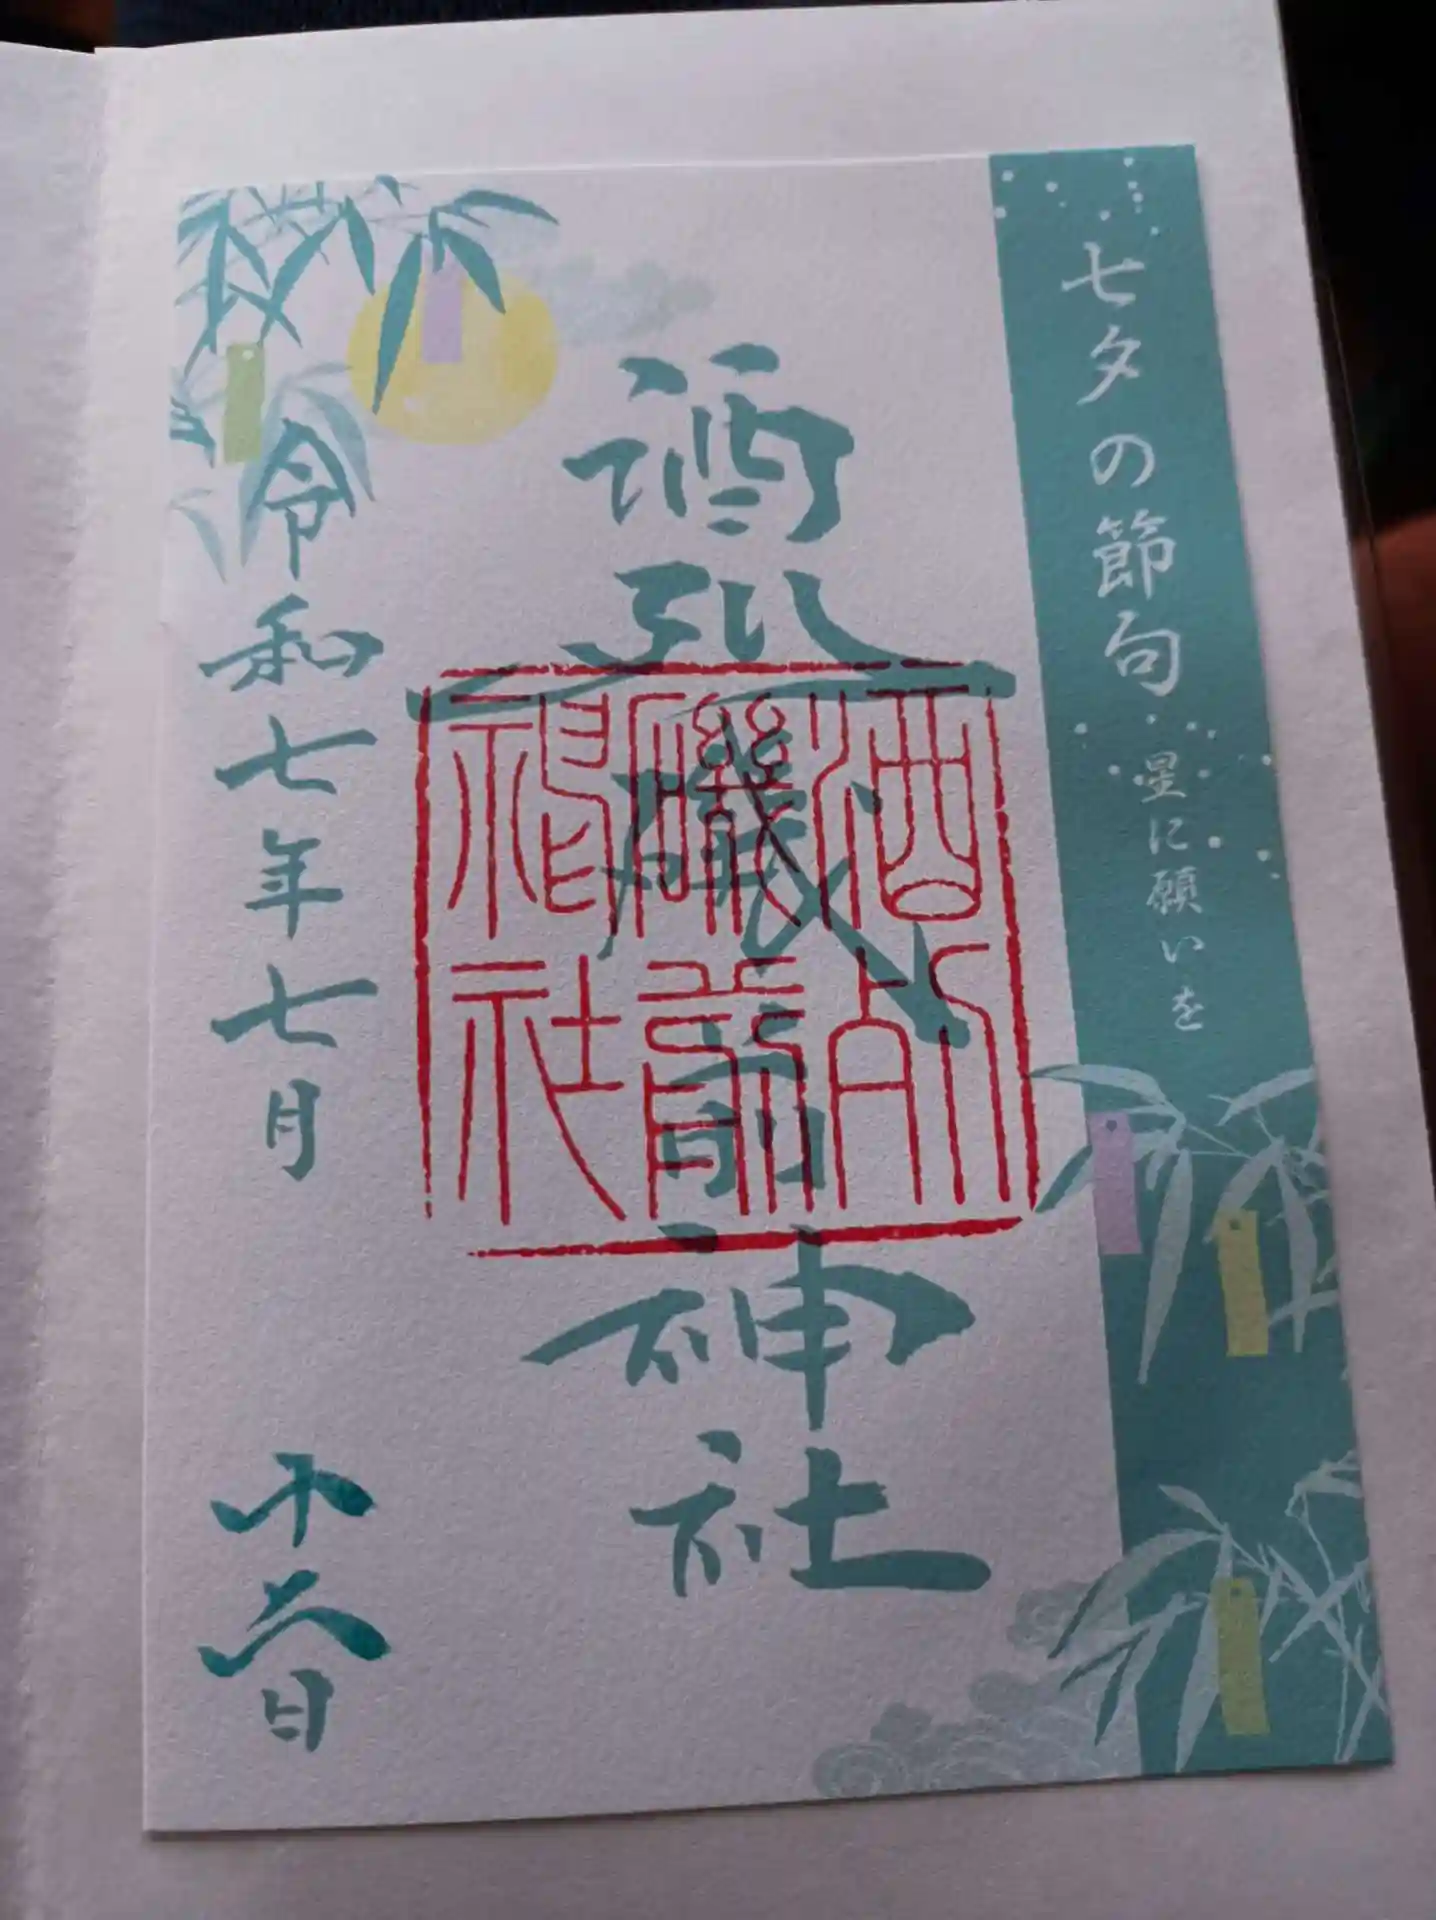 七夕の節句
星に願いを
酒列磯前神社
酒列
磯前
神社
令和七年七月
十六日